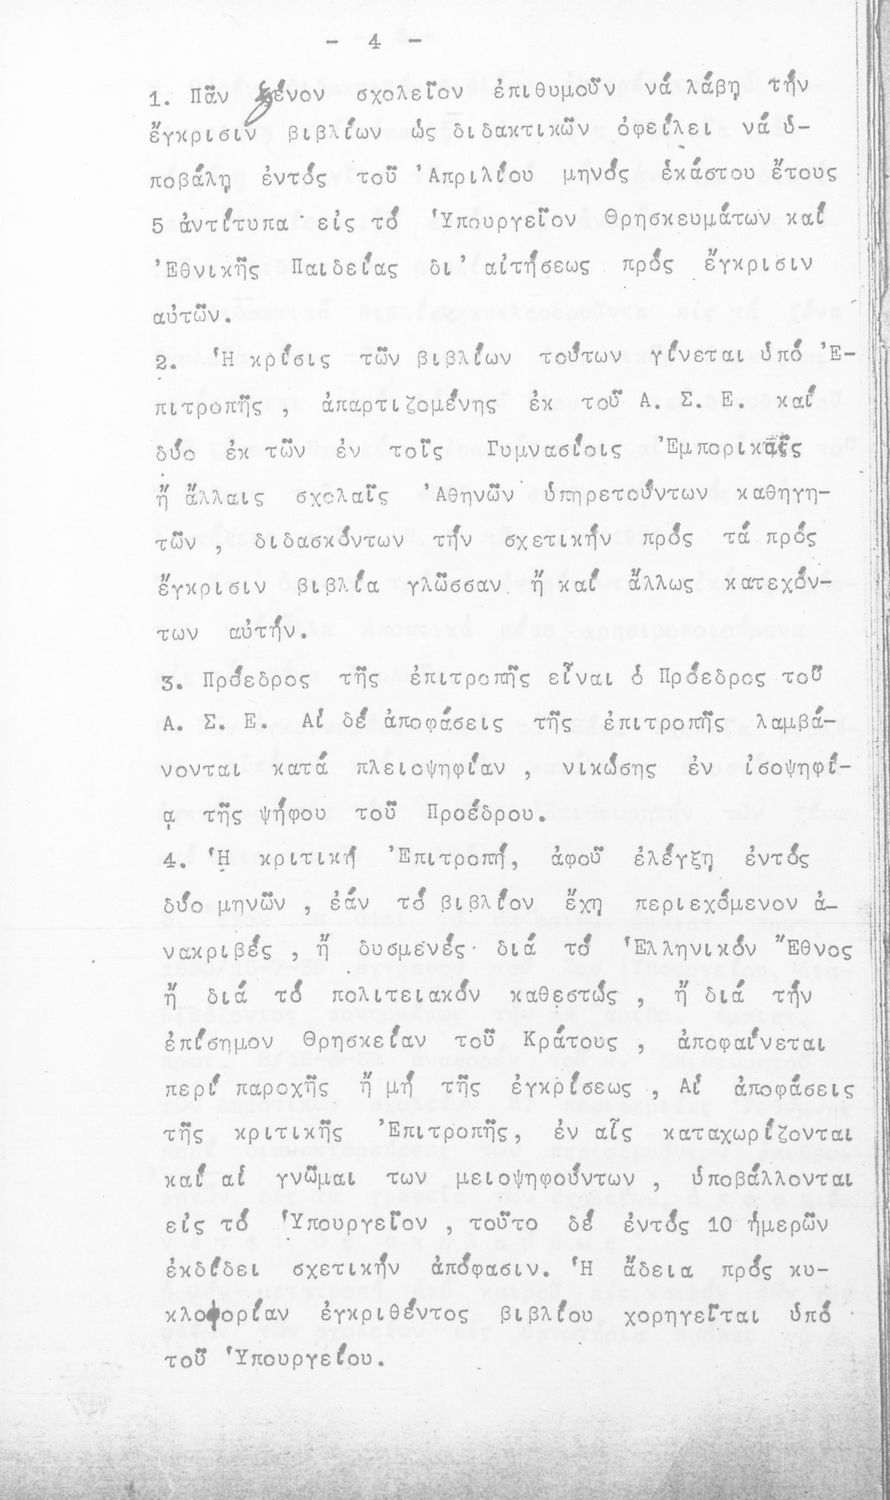 - 4 -
1. Πᾶν ξένον σχολεῖον ἐπιθυμοῦν νά λάβῃ τήν
ἔγκρισιν βιβλίων ὡς διδακτικῶν ὀφείλει νά ὑ-
ποβάλῃ ἐντός τοῦ Ἀπριλίου μηνός ἑκάστου ἔτους
5 ἀντίτυπα εἰς τό Ὑπουργεῖον Θρησκευμάτων καί
Ἐθνικῆς Παιδείας δι' αἰτήσεως πρός ἔγκρισιν
αὐτῶν.
2. Ἡ κρίσις τῶν βιβλίων τούτων γίνεται ὑπό Ἐ-
πιτροπῆς , ἀπαρτιζομένης ἐκ τοῦ Α. Σ. Ε. καί
δύο ἐκ τῶν ἐν τοῖς Γυμνασίοις Ἐμπορικαῖς
ἤ ἄλλαις σχολαῖς Ἀθηνῶν ὑπηρετούντων καθηγη-
τῶν , διδασκόντων τήν σχετικήν πρός τά πρός
ἔγκρισιν βιβλία γλῶσσαν ἤ καί ἄλλως κατεχόν-
των αὐτήν.
3. Πρόεδρος τῆς ἐπιτροπῆς εἶναι ὁ Πρόεδρος τοῦ
Α. Σ. Ε. Αἱ δέ ἀποφάσεις τῆς ἐπιτροπῆς λαμβά-
νονται κατά πλειοψηφίαν , νικώσης ἐν ἰσοψηφί-
ᾳ τῆς ψήφου τοῦ Προέδρου.
4. Ἡ κριτική Ἐπιτροπή, ἀφοῦ ἐλέγξῃ ἐντός
δύο μηνῶν , ἐάν τό βιβλίον ἔχῃ περιεχόμενον ἀ-
νακριβές , ἤ δυσμενές διά τό Ἑλληνικόν Ἔθνος
ἤ διά τό πολιτειακόν καθεστώς , ἤ διά τήν
ἐπίσημον Θρησκείαν τοῦ Κράτους , ἀποφαίνεται
περί παροχῆς ἤ μή τῆς ἐγκρίσεως , Αἱ ἀποφάσεις
τῆς κριτικῆς Ἐπιτροπῆς, ἐν αἷς καταχωρίζονται
καί αἱ γνῶμαι των μειοψηφούντων , ὑποβάλλονται
εἰς τό Ὑπουργεῖον , τοῦτο δέ ἐντός 10 ἡμερῶν
ἐκδίδει σχετικήν ἀπόφασιν. Ἡ ἄδεια πρός κυ-
κλοφορίαν ἐγκριθέντος βιβλίου χορηγεῖται ὑπό
τοῦ Ὑπουργείου.